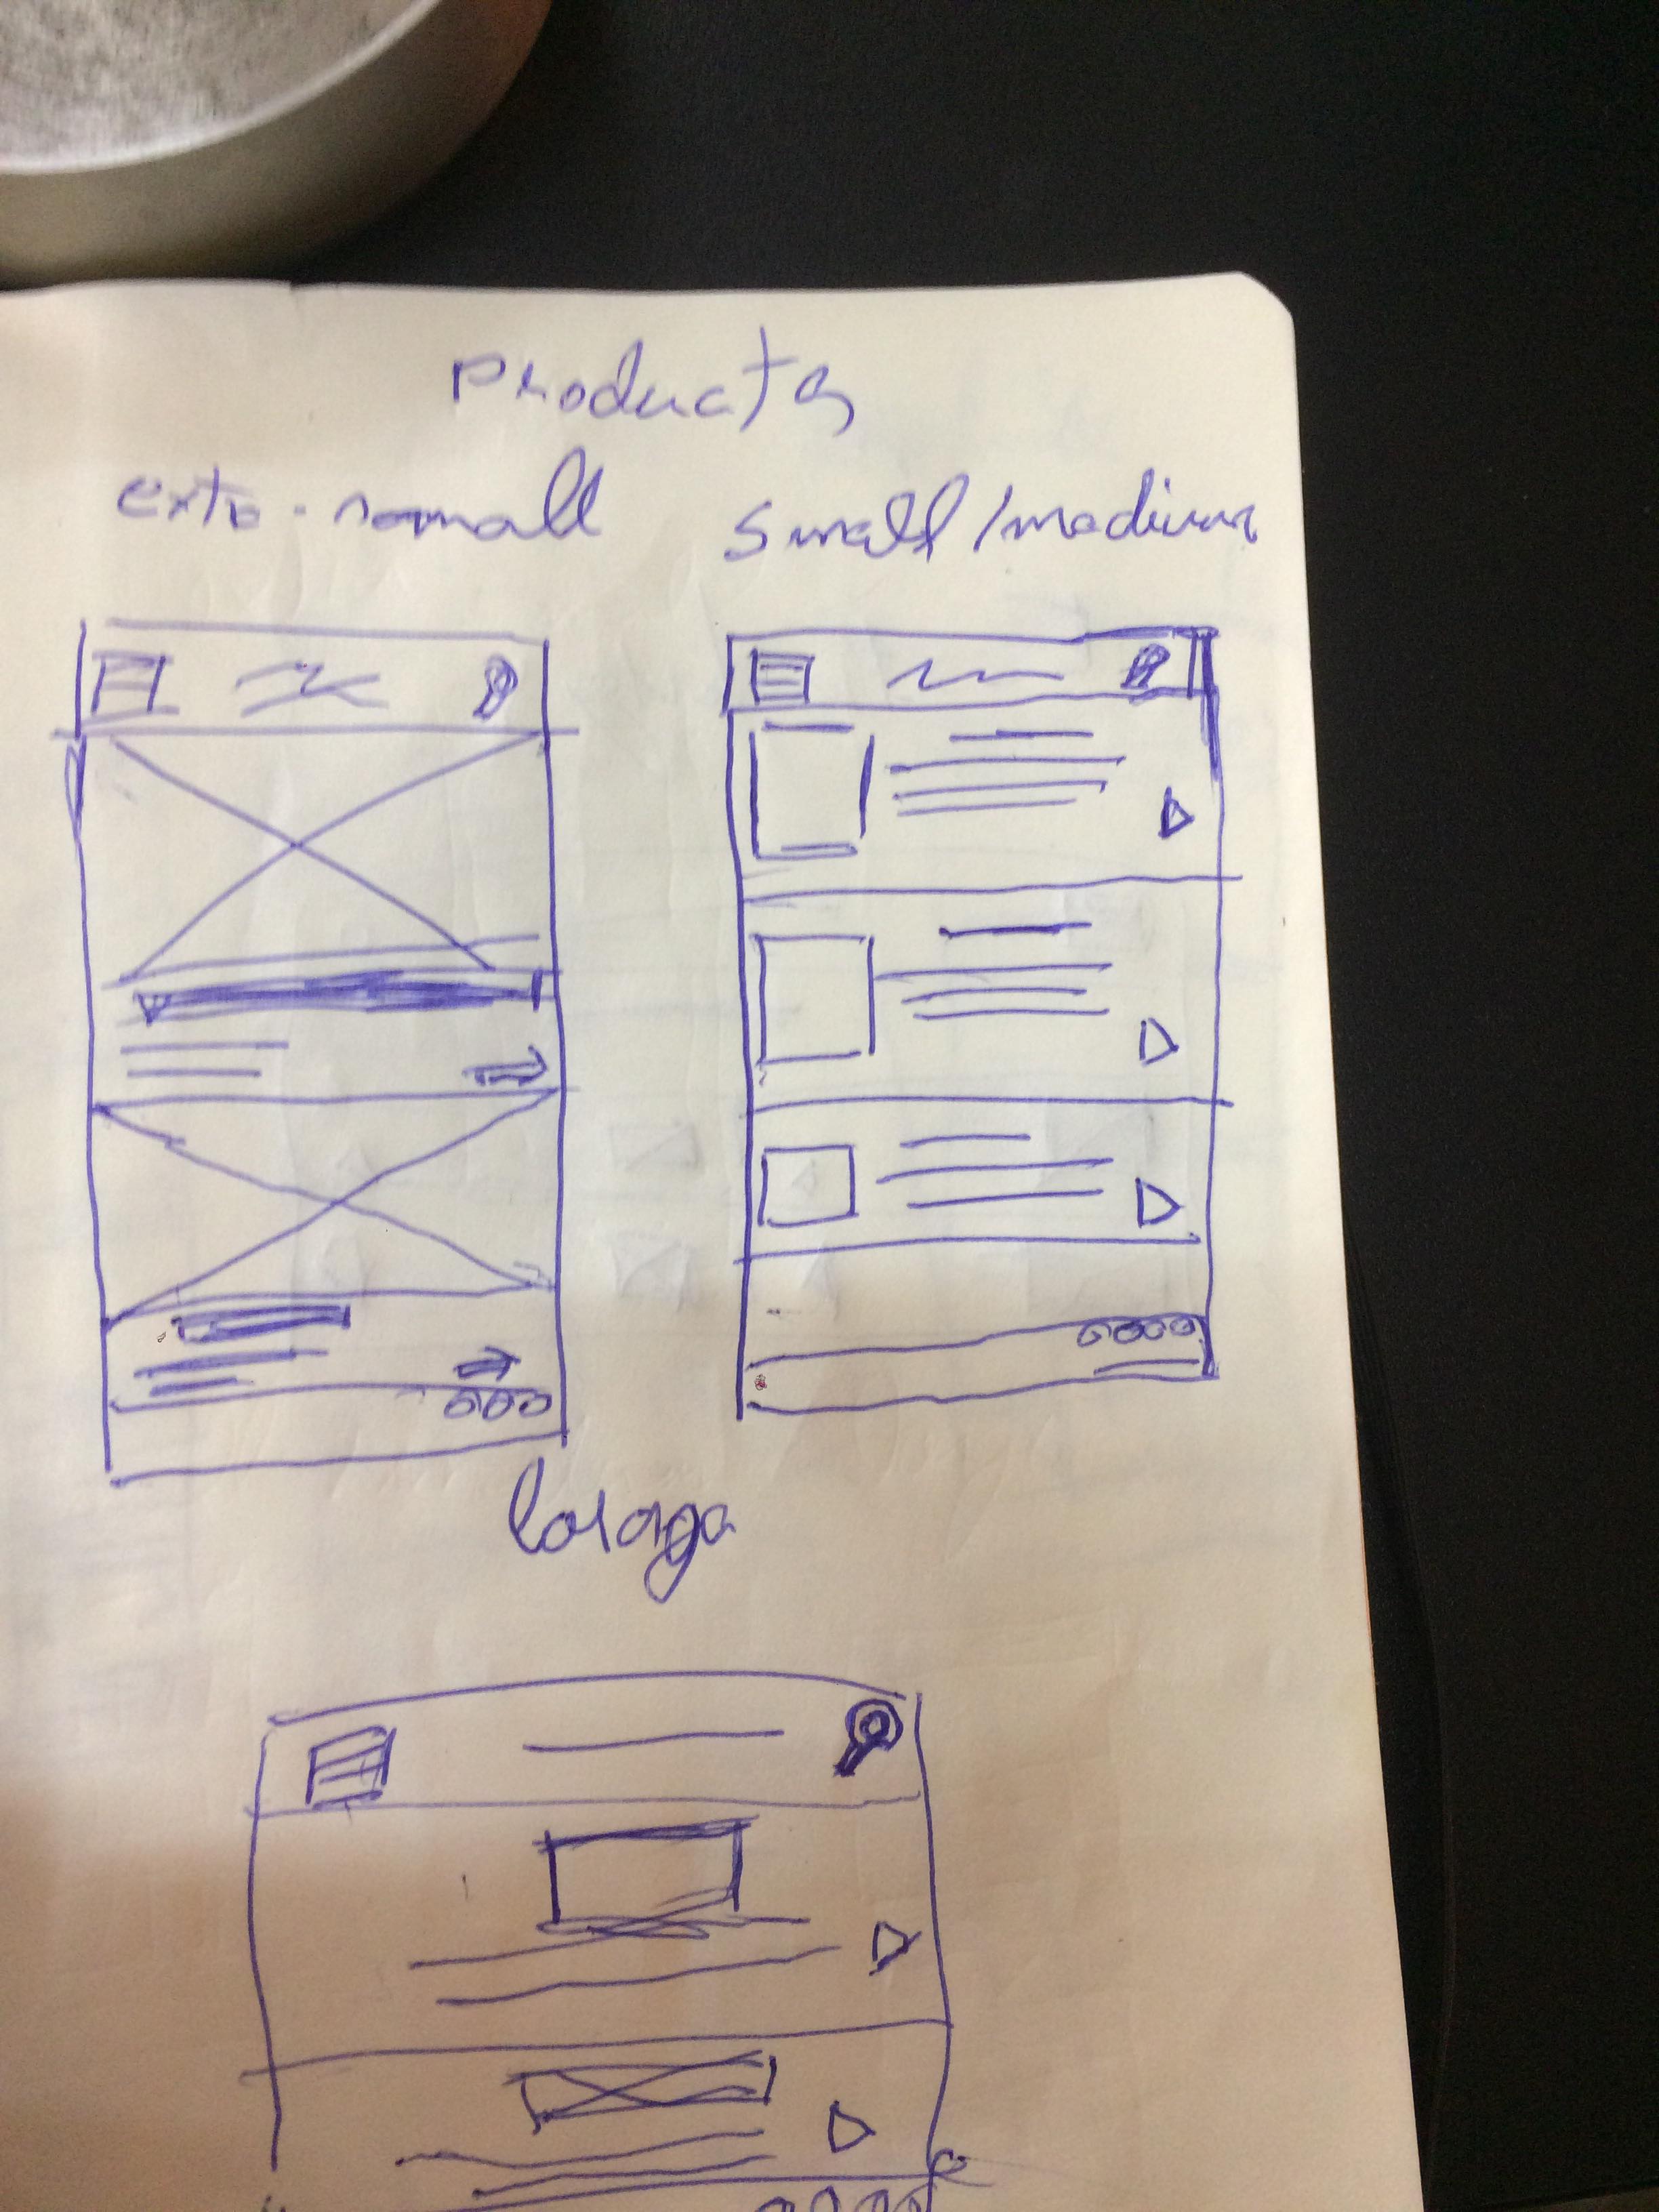 Products
extra-small
small/medium